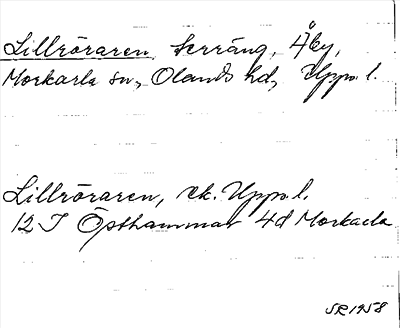 Lillröraren, terräng, Åby,
Morkarla sn, Olands hd, Upps. l.
Lillröraren, ek. Upps. l.
12 I Östhammar 4d Morkarla
SR 1958